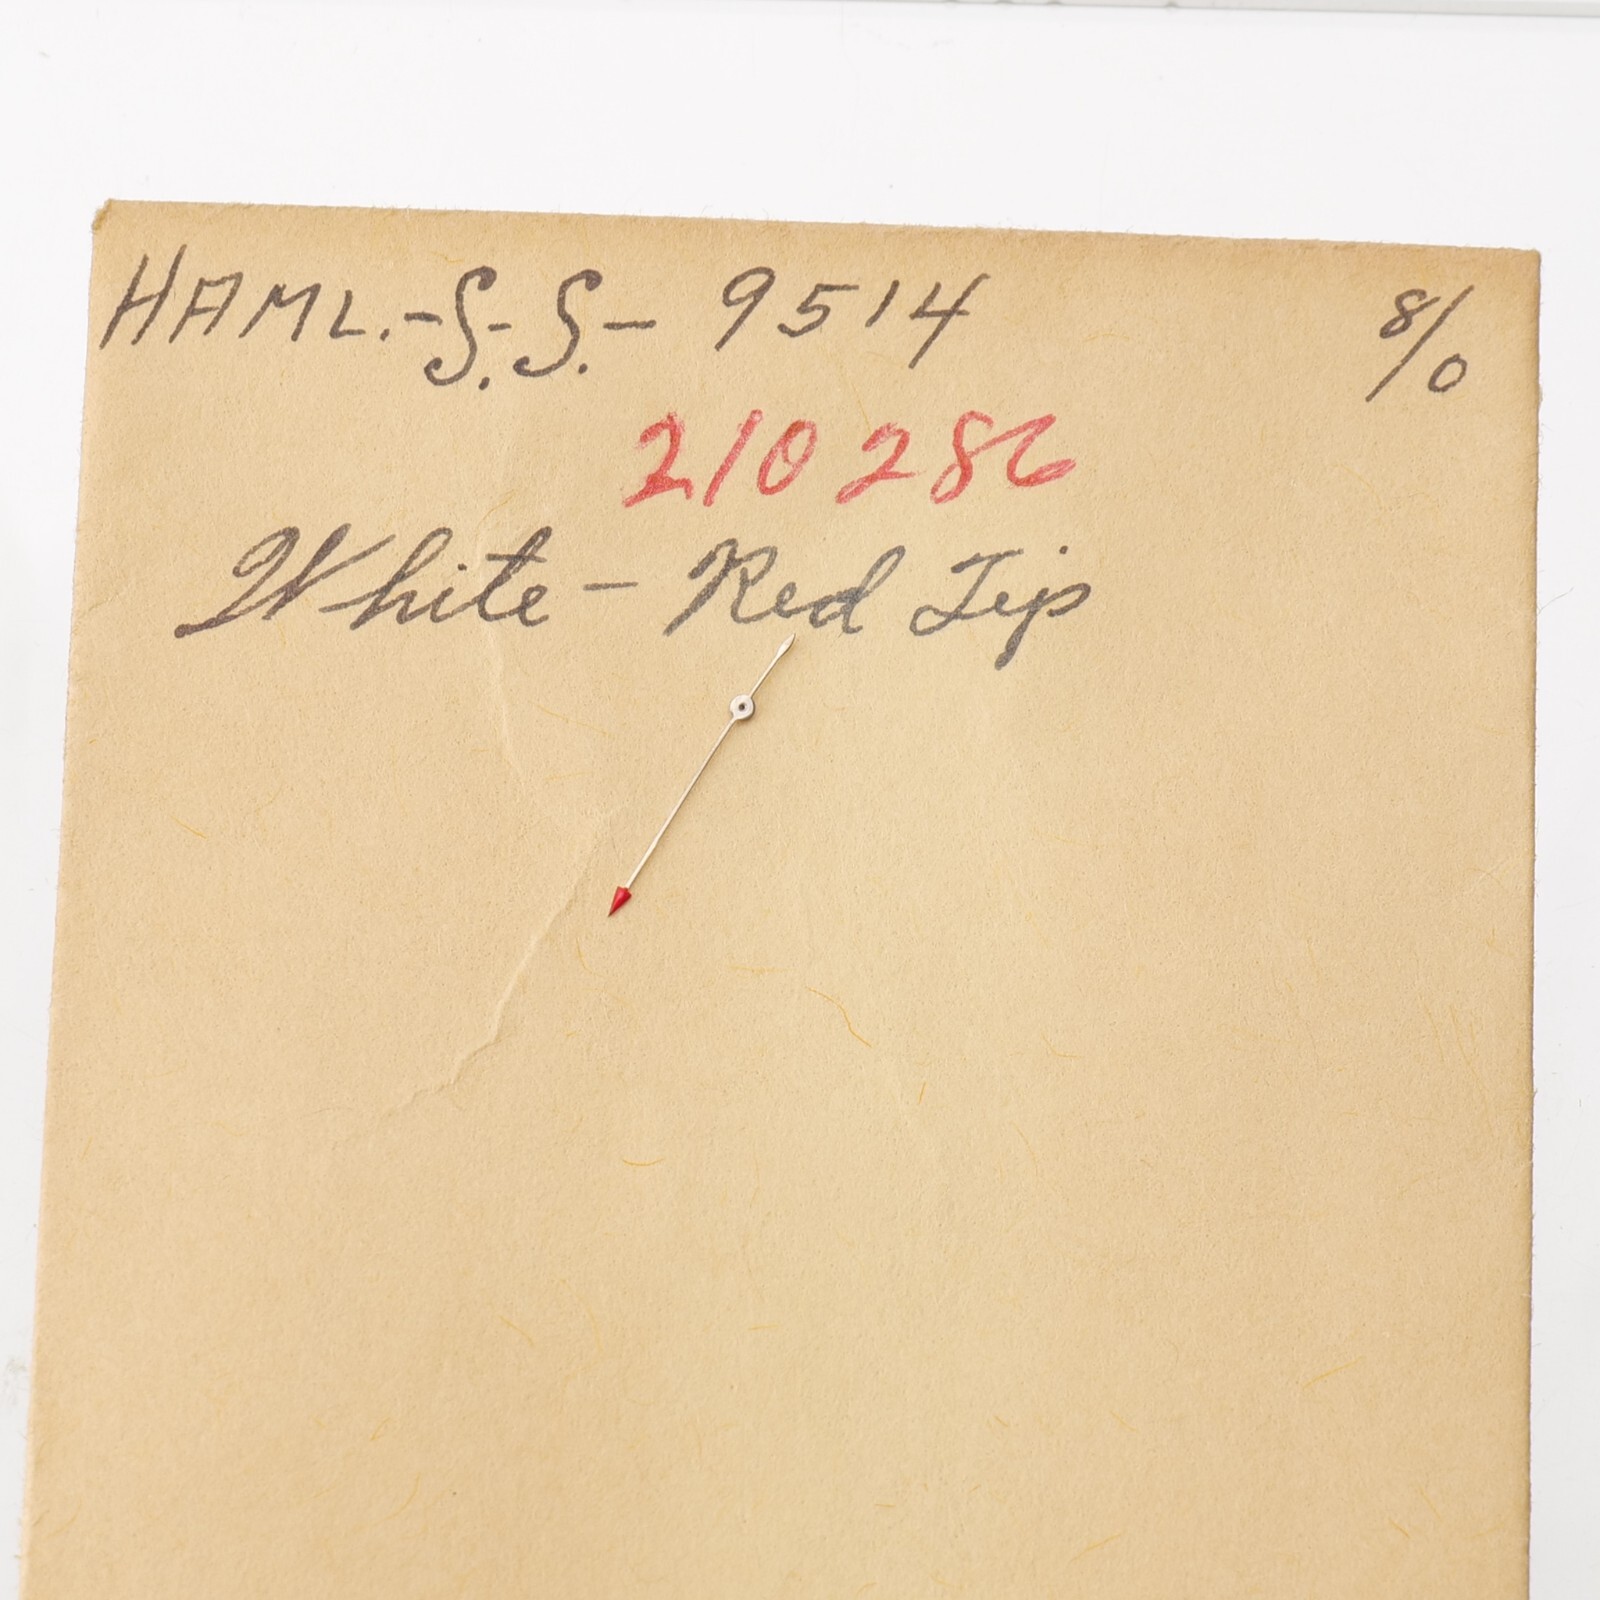 HAML.-S.-S.- 9514 8/0
210286
White - Red Tip